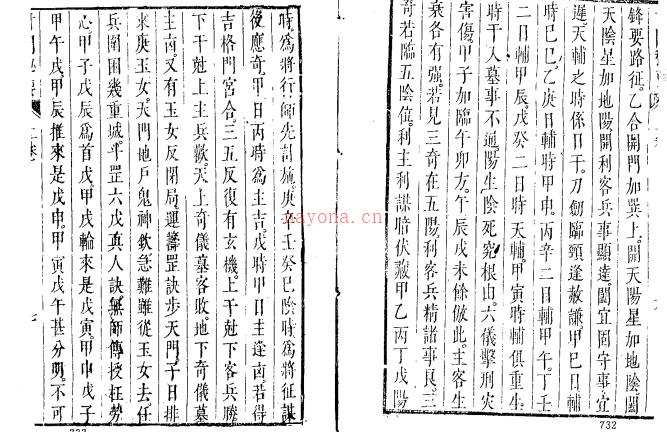 鋒要路征乙合開門加巽上開天陽星加地陰闔
天陰星加地陽開利客兵事顯達闔宜固守事宜
遲天輔之時係日干刀劍臨頭逢赦謙甲巳日輔
時巳巳乙庚日輔時甲申丙辛二日輔甲午丁壬
二日輔甲辰戊癸二日時天輔甲寅時輔俱重生
時干入墓事不通陽生陰死究根由六儀擊刑灾
害傷甲子如臨午卯方午辰戌未餘倣此主客生
衰各有强若見三奇在五陽利客兵精諸事良三
奇若臨五陰位利主利謀暗伏藏甲乙丙丁戊陽
732
時為將行師先討施庚辛壬癸巳陰時為將征謀
後應奇甲日丙時為主吉戊時甲日主逢凶若得
吉格門宮合三五反復有玄機上干尅下客兵勝
下干尅上主兵歡天上奇儀墓客敗地下奇儀墓
主凶又有玉女反閉局運籌罡訣步天門子日排
來庚玉女天門地戶鬼神欽急難雖從玉女去任
兵圍困幾重城斗罡六戊真人訣無師傳授枉勞
心甲子戊辰為首戊甲戌輪來是戊寅甲申戊子
甲午戊甲辰推來是戊申甲寅戊午甚分明不可
二卷
七
nayona.cn